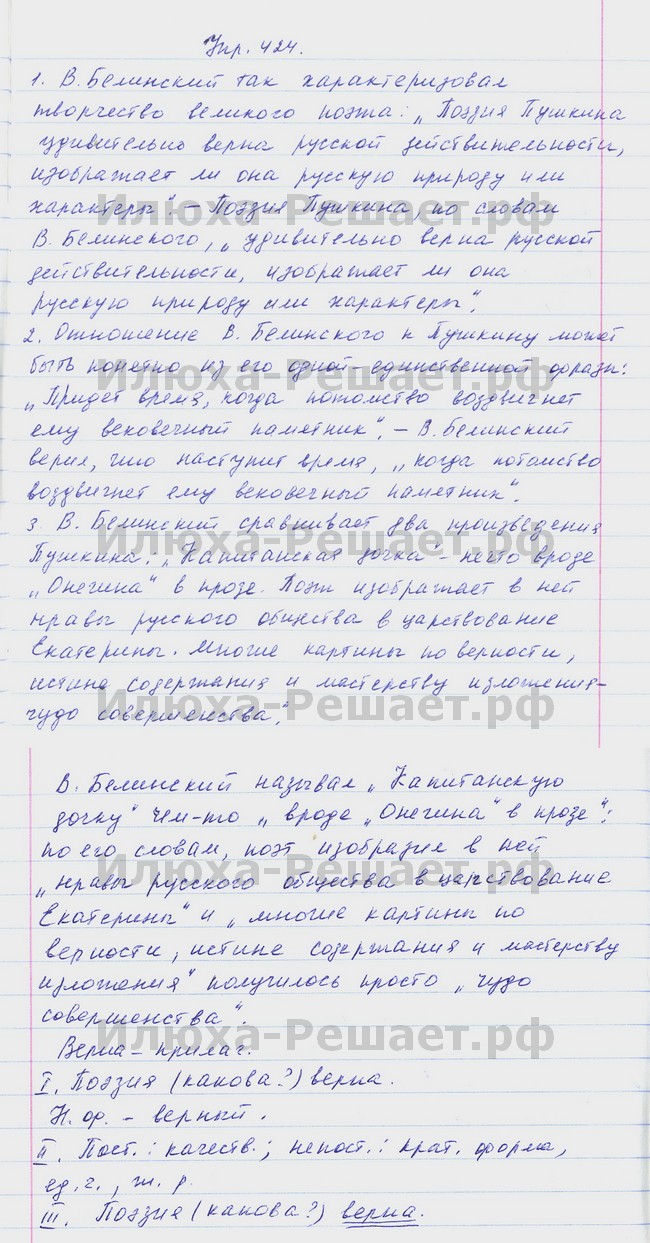 Упр. 424.
1. В. Белинский так характеризовал
творчество великого поэта: „Поэзия Пушкина
удивительно верна русской действительности,
изображает ли она русскую природу или
характеры“. – Поэзия Пушкина, по словам
Илюха-Решает.рф
В. Белинского, „удивительно верна русской
действительности, изображает ли она
русскую природу или характеры“.
2. Отношение В. Белинского к Пушкину может
быть понятно из его одной-единственной фразы:
Илюха-Решает.рф
„Придет время, когда потомство воздвигнет
ему вековечный памятник“. – В. Белинский
верил, что наступит время, „когда потомство
воздвигнет ему вековечный памятник“.
3. В. Белинский сравнивает два произведения
Илюха-Решает.рф
Пушкина: „Капитанская дочка“ – нечто вроде
„Онегина“ в прозе. Поэт изображает в ней
нравы русского общества в царствование
Екатерины. Многие картины по верности,
истине содержания и мастерству изложения –
Илюха-Решает.рф
чудо совершенства“.
В. Белинский называл „Капитанскую
дочку“ чем-то „вроде „Онегина“ в прозе“:
по его словам, поэт изобразил в ней
Илюха-Решает.рф
„нравы русского общества в царствование
Екатерины“ и „многие картины по
верности, истине содержания и мастерству
изложения“ получилось просто „чудо
совершенства“.
Илюха-Решает.рф
Верна – прилаг.
I. Поэзия (какова?) верна.
Н. ф. – верный.
II. Пост.: качеств.; непост.: крат. форма,
ед. ч., ж. р.
III. Поэзия (какова?) верна.